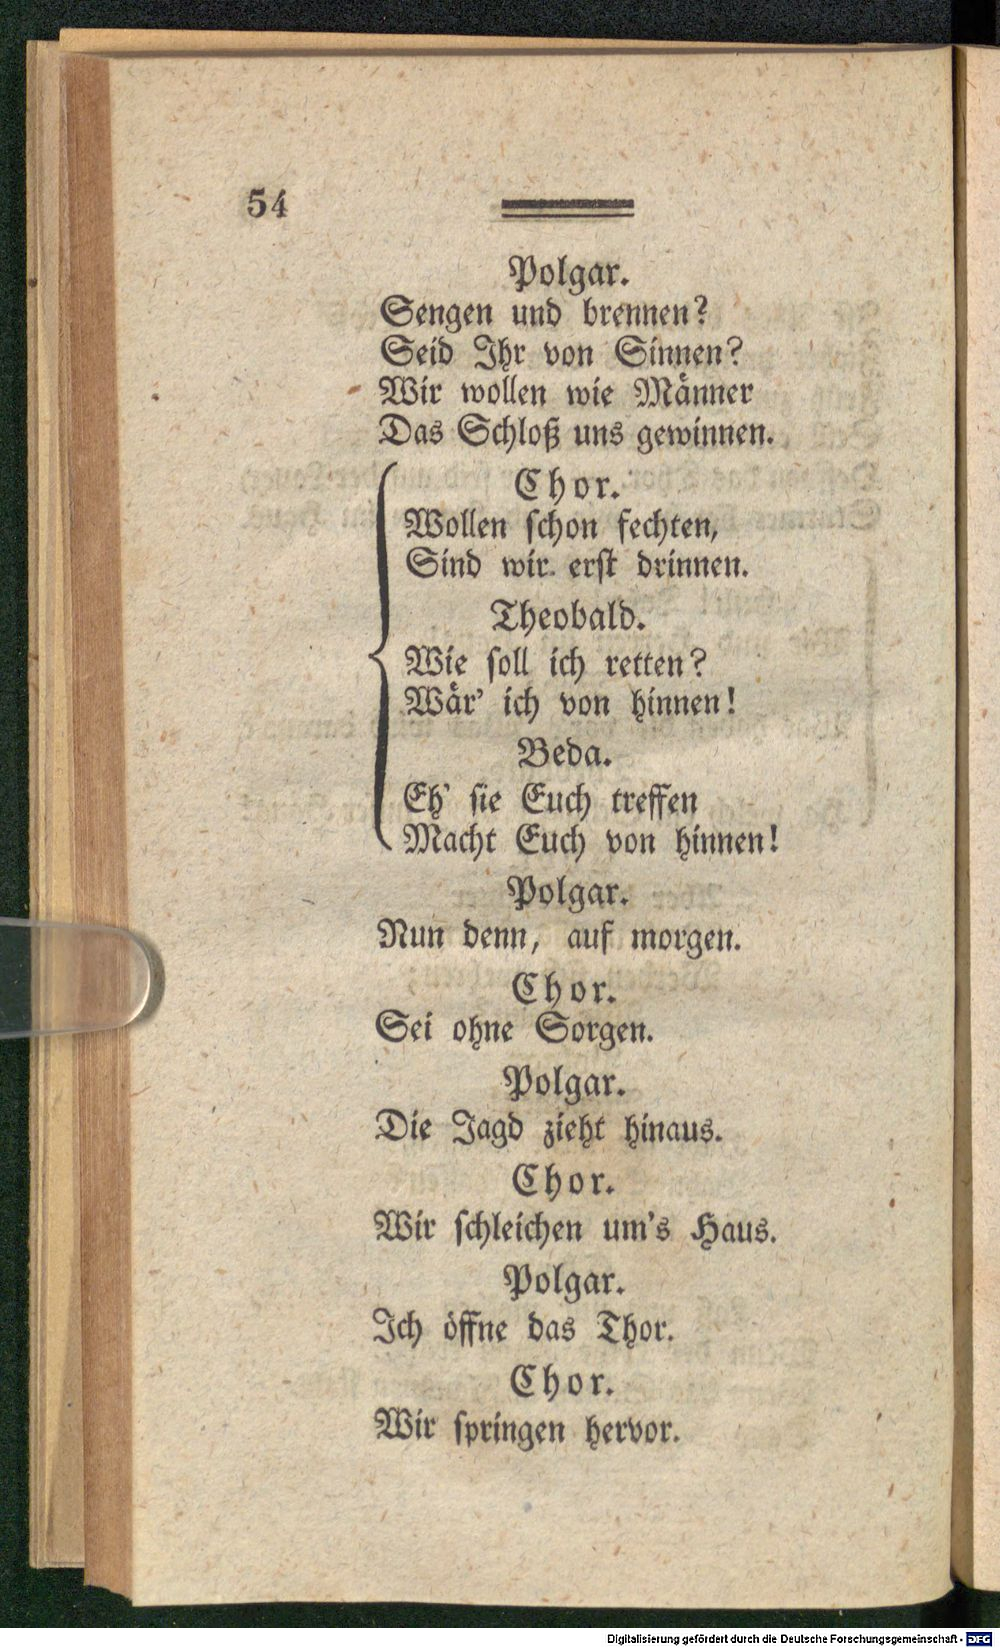 54
Polgar.
Sengen und brennen?
Seid Ihr von Sinnen?
Wir wollen wie Männer
Das Schloß uns gewinnen.
Chor.
Wollen schon fechten,
Sind wir erst drinnen.
Theobald.
Wie soll ich retten?
Wär' ich von hinnen!
Beda.
Eh' sie Euch treffen
Macht Euch von hinnen!
Polgar.
Nun denn, auf morgen.
Chor.
Sei ohne Sorgen.
Polgar.
Die Jagd zieht hinaus.
Chor.
Wir schleichen um's Haus.
Polgar.
Ich öffne das Thor.
Chor.
Wir springen hervor.
Digitalisierung gefördert durch die Deutsche Forschungsgemeinschaft - DFG